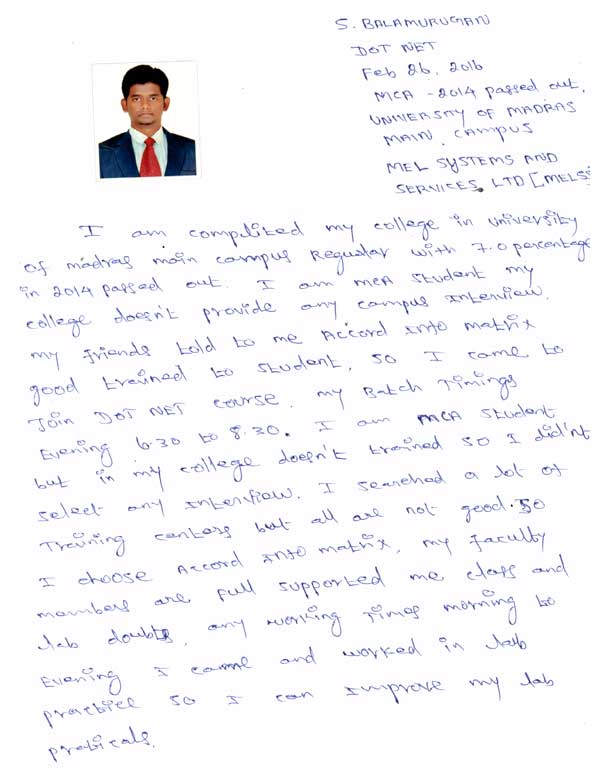 S. BALAMURUGAN
DOT NET
Feb 26, 2016
MCA - 2014 passed out.
UNIVERSITY OF MADRAS
MAIN CAMPUS
MEL SYSTEMS AND
SERVICES. LTD [MELSS
I am complited my college in university
of madras main campus Regular with 7.0 percentage
in 2014 passed out. I am MCA student my
college doesn't provide any campus Interview.
my friends told to me Accord Info matrix
good trained to student, so I came to
Join DOT NET course. my Batch Timings
Evening 6.30 to 8.30. I am MCA student
but in my college doesn't trained so I did'nt
select any Interview. I searched a lot of
Training centers but all are not good. so
I choose Accord Info matrix, my faculty
members are full supported me class and
lab doubts, any working Times morning to
Evening I came and worked in lab
practice so I can Improve my lab
praticals.